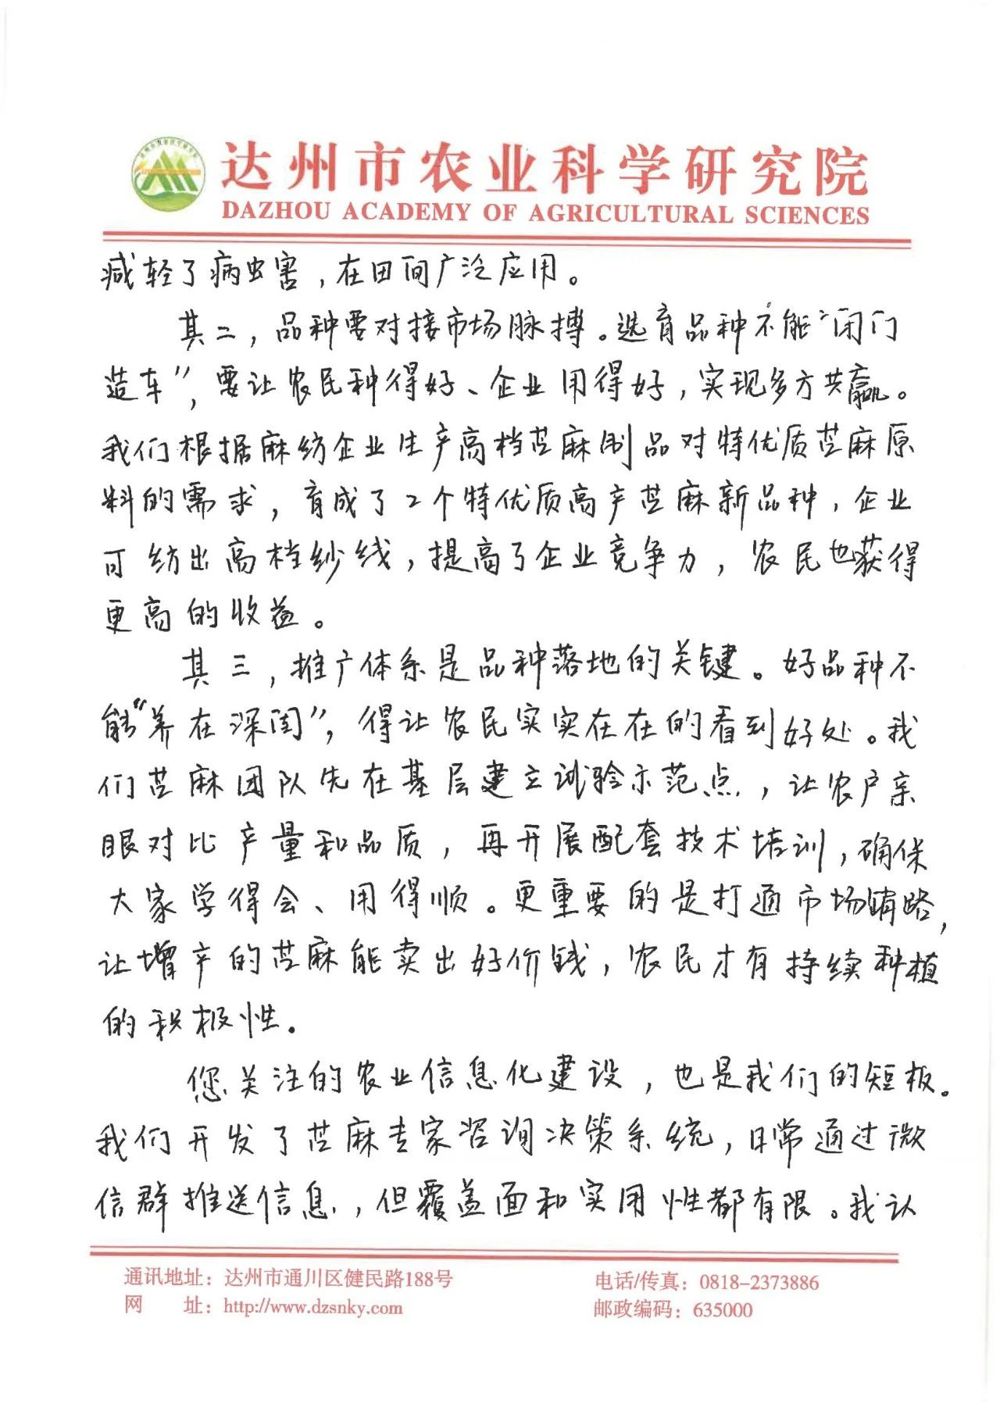 达州市农业科学研究院
DAZHOU ACADEMY OF AGRICULTURAL SCIENCES
减轻了病虫害，在田间广泛应用。
其二，品种要对接市场脉搏。选育品种不能“闭门
造车”，要让农民种得好、企业用得好，实现多方共赢。
我们根据麻纺企业生产高档苎麻制品对特优质苎麻原
料的需求，育成了2个特优质高产苎麻新品种，企业
可纺出高档纱线，提高了企业竞争力，农民也获得
更高的收益。
其三，推广体系是品种落地的关键。好品种不
能“养在深闺”，得让农民实实在在的看到好处。我
们苎麻团队先在基层建立试验示范点，让农户亲
眼对比产量和品质，再开展配套技术培训，确保
大家学得会、用得顺。更重要的是打通市场销路，
让增产的苎麻能卖出好价钱，农民才有持续种植
的积极性。
您关注的农业信息化建设，也是我们的短板。
我们开发了苎麻专家咨询决策系统，日常通过微
信群推送信息，但覆盖面和实用性都有限。我认
通讯地址：达州市通川区健民路188号
电话/传真：0818-2373886
网 址：http://www.dzsnky.com
邮政编码：635000